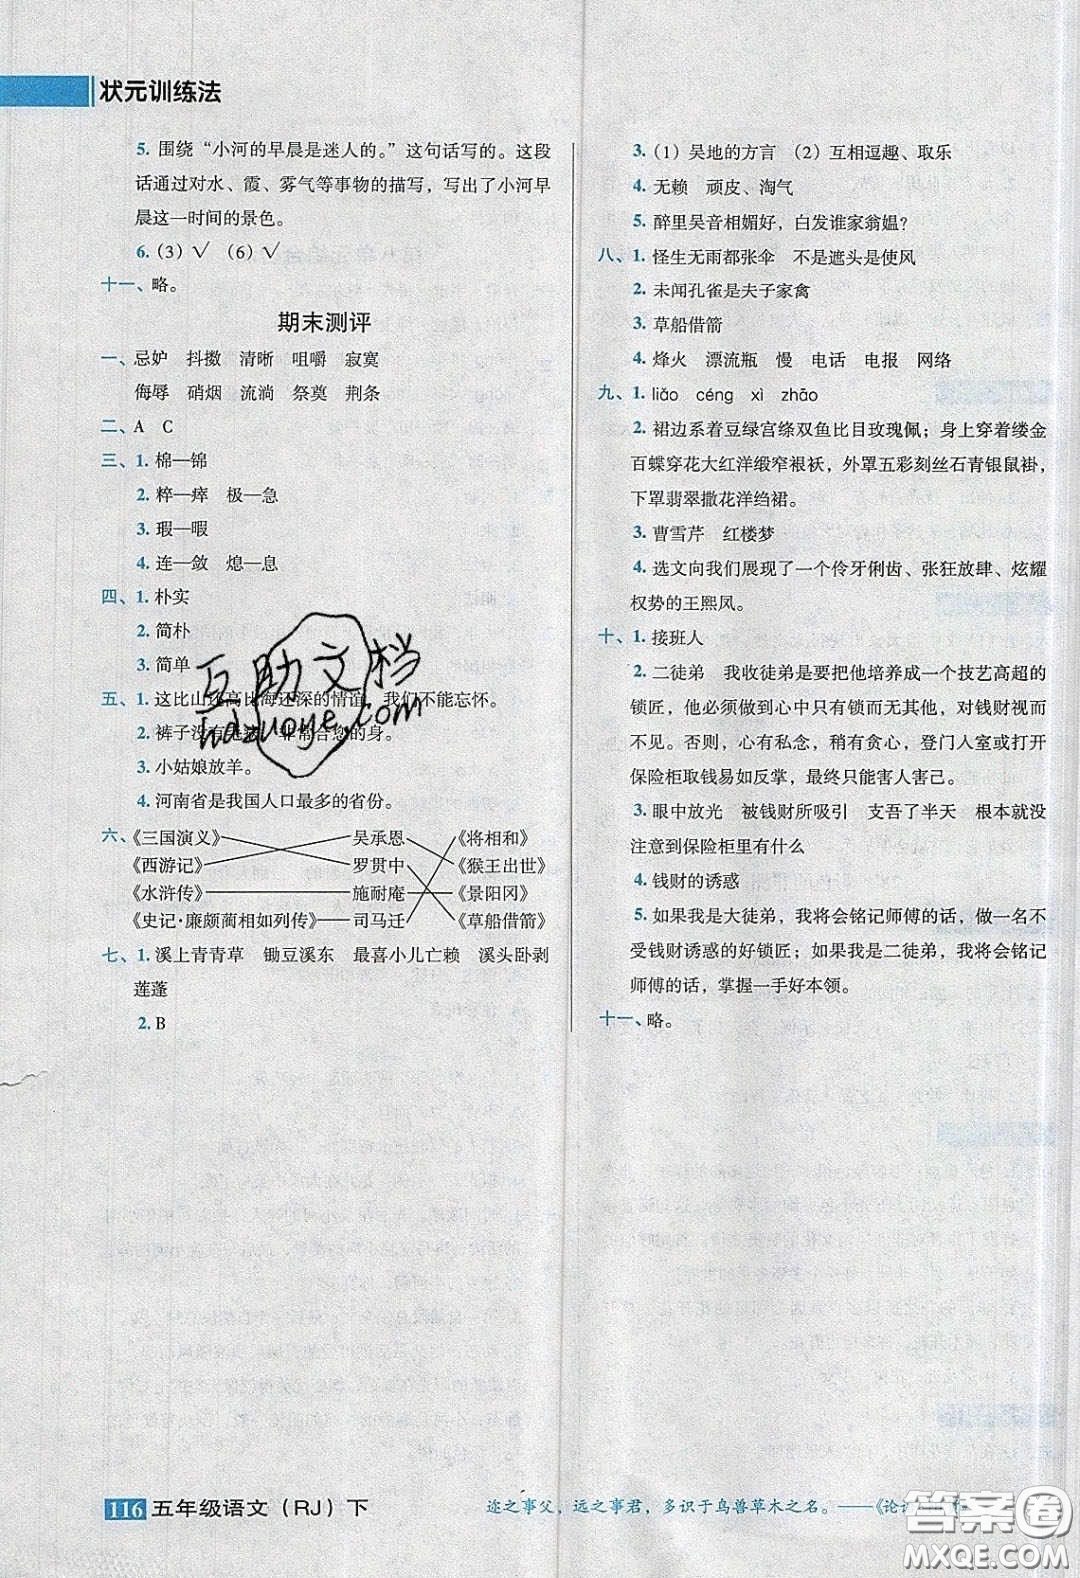 状元训练法
5. 围绕“小河的早晨是迷人的。”这句话写的。这段
话通过对水、霞、雾气等事物的描写，写出了小河早
晨这一时间的景色。
6. (3) √ (6) √
十一、略。
期末测评
一、忌妒 抖擞 清晰 咀嚼 寂寞
侮辱 硝烟 流淌 祭奠 荆条
二、A C
三、1. 棉—锦
2. 粹—瘁 极—急
3. 瑕—暇
4. 连—敛 熄—息
四、1. 朴实
2. 简朴
3. 简单
五、1. 这比山还高比海还深的情谊，我们不能忘怀。
2. 裤子没有 非常合您的身。
3. 小姑娘放羊。
4. 河南省是我国人口最多的省份。
六、《三国演义》 吴承恩 《将相和》
《西游记》 罗贯中 《猴王出世》
《水浒传》 施耐庵 《景阳冈》
《史记·廉颇蔺相如列传》 司马迁 《草船借箭》
七、1. 溪上青青草 锄豆溪东 最喜小儿亡赖 溪头卧剥
莲蓬
2. B
3. (1) 吴地的方言 (2) 互相逗趣、取乐
4. 无赖 顽皮、淘气
5. 醉里吴音相媚好，白发谁家翁媪？
八、1. 怪生无雨都张伞 不是遮头是使风
2. 未闻孔雀是夫子家禽
3. 草船借箭
4. 烽火 漂流瓶 慢 电话 电报 网络
九、1. liǎo céng xì zhāo
2. 裙边系着豆绿宫绦双鱼比目玫瑰佩；身上穿着缕金
百蝶穿花大红洋缎窄裉袄，外罩五彩刻丝石青银鼠褂，
下罩翡翠撒花洋绉裙。
3. 曹雪芹 红楼梦
4. 选文向我们展现了一个伶牙俐齿、张狂放肆、炫耀
权势的王熙凤。
十、1. 接班人
2. 二徒弟 我收徒弟是要把他培养成一个技艺高超的
锁匠，他必须做到心中只有锁而无其他，对钱财视而
不见。否则，心有私念，稍有贪心，登门人室或打开
保险柜取钱易如反掌，最终只能害人害己。
3. 眼中放光 被钱财所吸引 支吾了半天 根本就没
注意到保险柜里有什么
4. 钱财的诱惑
5. 如果我是大徒弟，我将会铭记师傅的话，做一名不
受钱财诱惑的好锁匠；如果我是二徒弟，我将会铭记
师傅的话，掌握一手好本领。
十一、略。
互助文档
hdzuoye.com
116 五年级语文（RJ）下
迩之事父，远之事君，多识于鸟兽草木之名。——《论
答案圈
MXQE.COM